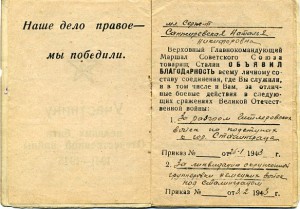 Наше дело правое—
мы победили.
мл. Сержт
Наталия
Никифоровна
Верховный Главнокомандующий
Маршал Советского Союза
товарищ Сталин ОБЪЯВИЛ
БЛАГОДАРНОСТЬ всему личному со-
ставу соединения, где Вы служили,
и в том числе и Вам, за от-
личные боевые действия в следую-
щих сражениях Великой Отечествен-
ной войны:
1. За разгром гитлеровских
войск на подступах
к гор. Сталинграду
Приказ № от 25-1 1943 г.
2. За ликвидацию окруженной
группировки немецких войск
под Сталинградом
Приказ № от 3.2 1943 г.